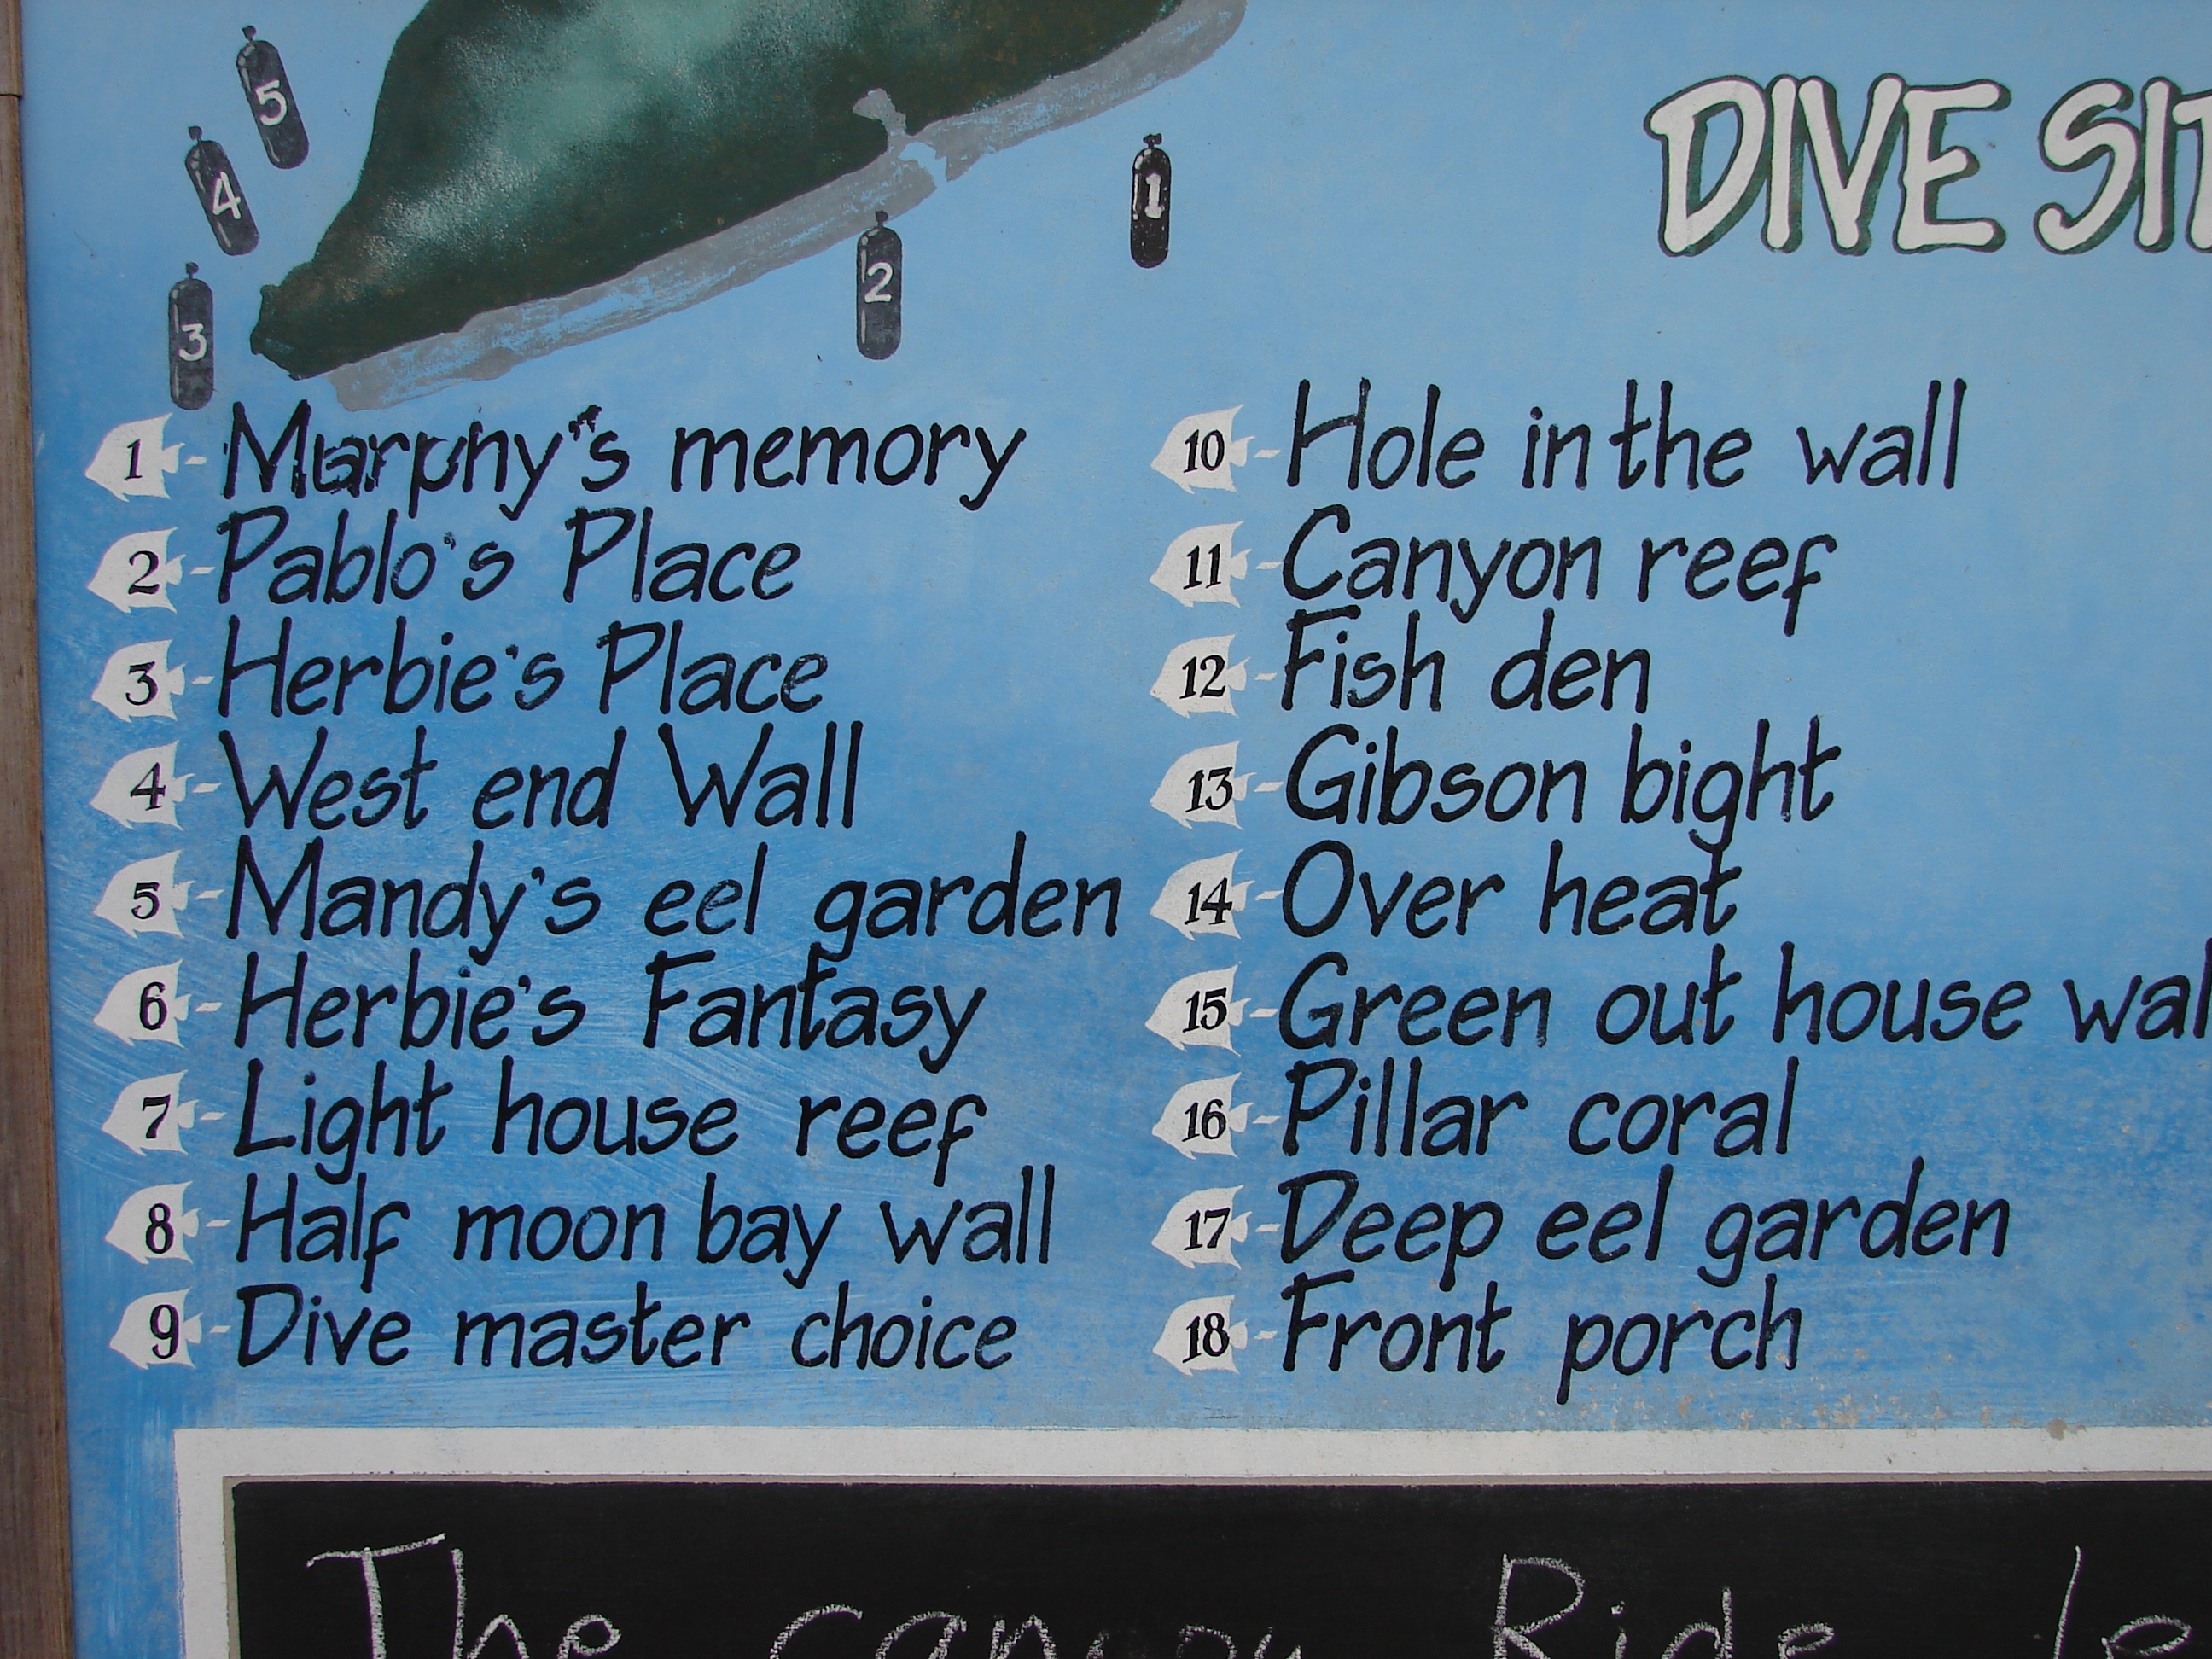 5
4
1
2
3
DIVE SIT
1 - Murphy's memory
2 - Pablo's Place
3 - Herbie's Place
4 - West end Wall
5 - Mandy's eel garden
6 - Herbie's Fantasy
7 - Light house reef
8 - Half moon bay wall
9 - Dive master choice
10 - Hole in the wall
11 - Canyon reef
12 - Fish den
13 - Gibson bight
14 - Over heat
15 - Green out house wal
16 - Pillar coral
17 - Deep eel garden
18 - Front porch
The canopy Ride le